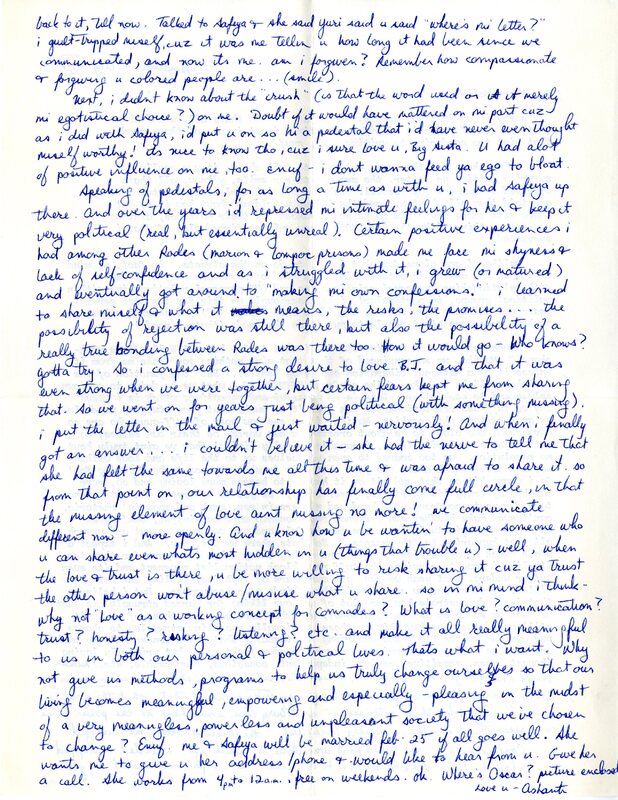 back to it, till now. Talked to Safiya & she said Yuri said u said "where's mi letter?"
i guilt-tripped miself, cuz it was me tellin u how long it had been since we
communicated, and now its me. am i forgiven? Remember how compassionate
& forgiving u colored people are... (smile).
Next, i didnt know about the "crush" (is that the word used or is it merely
mi egotistical choice?) on me. Doubt if it would have mattered on mi part cuz
as i did with Safiya, i'd put u on so hi a pedestal that i'd have never even thought
myself worthy! its nice to know tho, cuz i sure love u, Big Sista. U had alot
of positive influence on me, too. Enuf - i dont wanna feed ya ego to bloat.
Speaking of pedestals, for as long a time as with u, i had Safiya up
there. And over the years i'd repressed mi intimate feelings for her & keep it
very political (real, but essentially unreal). Certain positive experiences i
had among other Rades (marion & lompoc prisons) made me face mi shyness &
lack of self-confidence and as i struggled with it, i grew (or matured)
and eventually got around to "making mi own confessions." i learned
to share miself & what it means, the risks! the promises.... the
possibility of rejection was still there, but also the possibility of a
really true bonding between Rades was there too. How it would go - who knows?
gotta try. So i confessed a strong desire to love B.J. and that it was
even strong when we were together, but certain fears kept me from sharing
that. So we went on for years just being political (with something missing).
i put the letter in the mail & just waited - nervously! And when i finally
got an answer... i couldn't believe it - she had the nerve to tell me that
she had felt the same towards me all this time & was afraid to share it. so
from that point on, our relationship has finally come full circle, in that
the missing element of love aint missing no more! we communicate
different now - more openly. And u know how u be wantin' to have someone who
u can share even whats most hidden in u (things that trouble u) - well, when
the love & trust is there, u be more willing to risk sharing it cuz ya trust
the other person wont abuse/misuse what u share. so in mi mind i think -
why not "love" as a working concept for comrades? What is love? communication?
trust? honesty? risking? listening? etc. and make it all really meaningful
to us in both our personal & political lives. Thats what i want. Why
not give us methods, programs to help us truly change ourselves so that our
living becomes meaningful, empowering and especially - pleasing in the midst
of a very meaningless, powerless and unpleasant society that we've chosen
to change? Enuf. me & Safiya will be married feb. 25 if all goes well. She
wants me to give u her address/phone & would like to hear from u. Give her
a call. She works from 4pm to 12 a.m. free on weekends. ok. Where's Oscar? picture enclosed
Love u - Ashanti